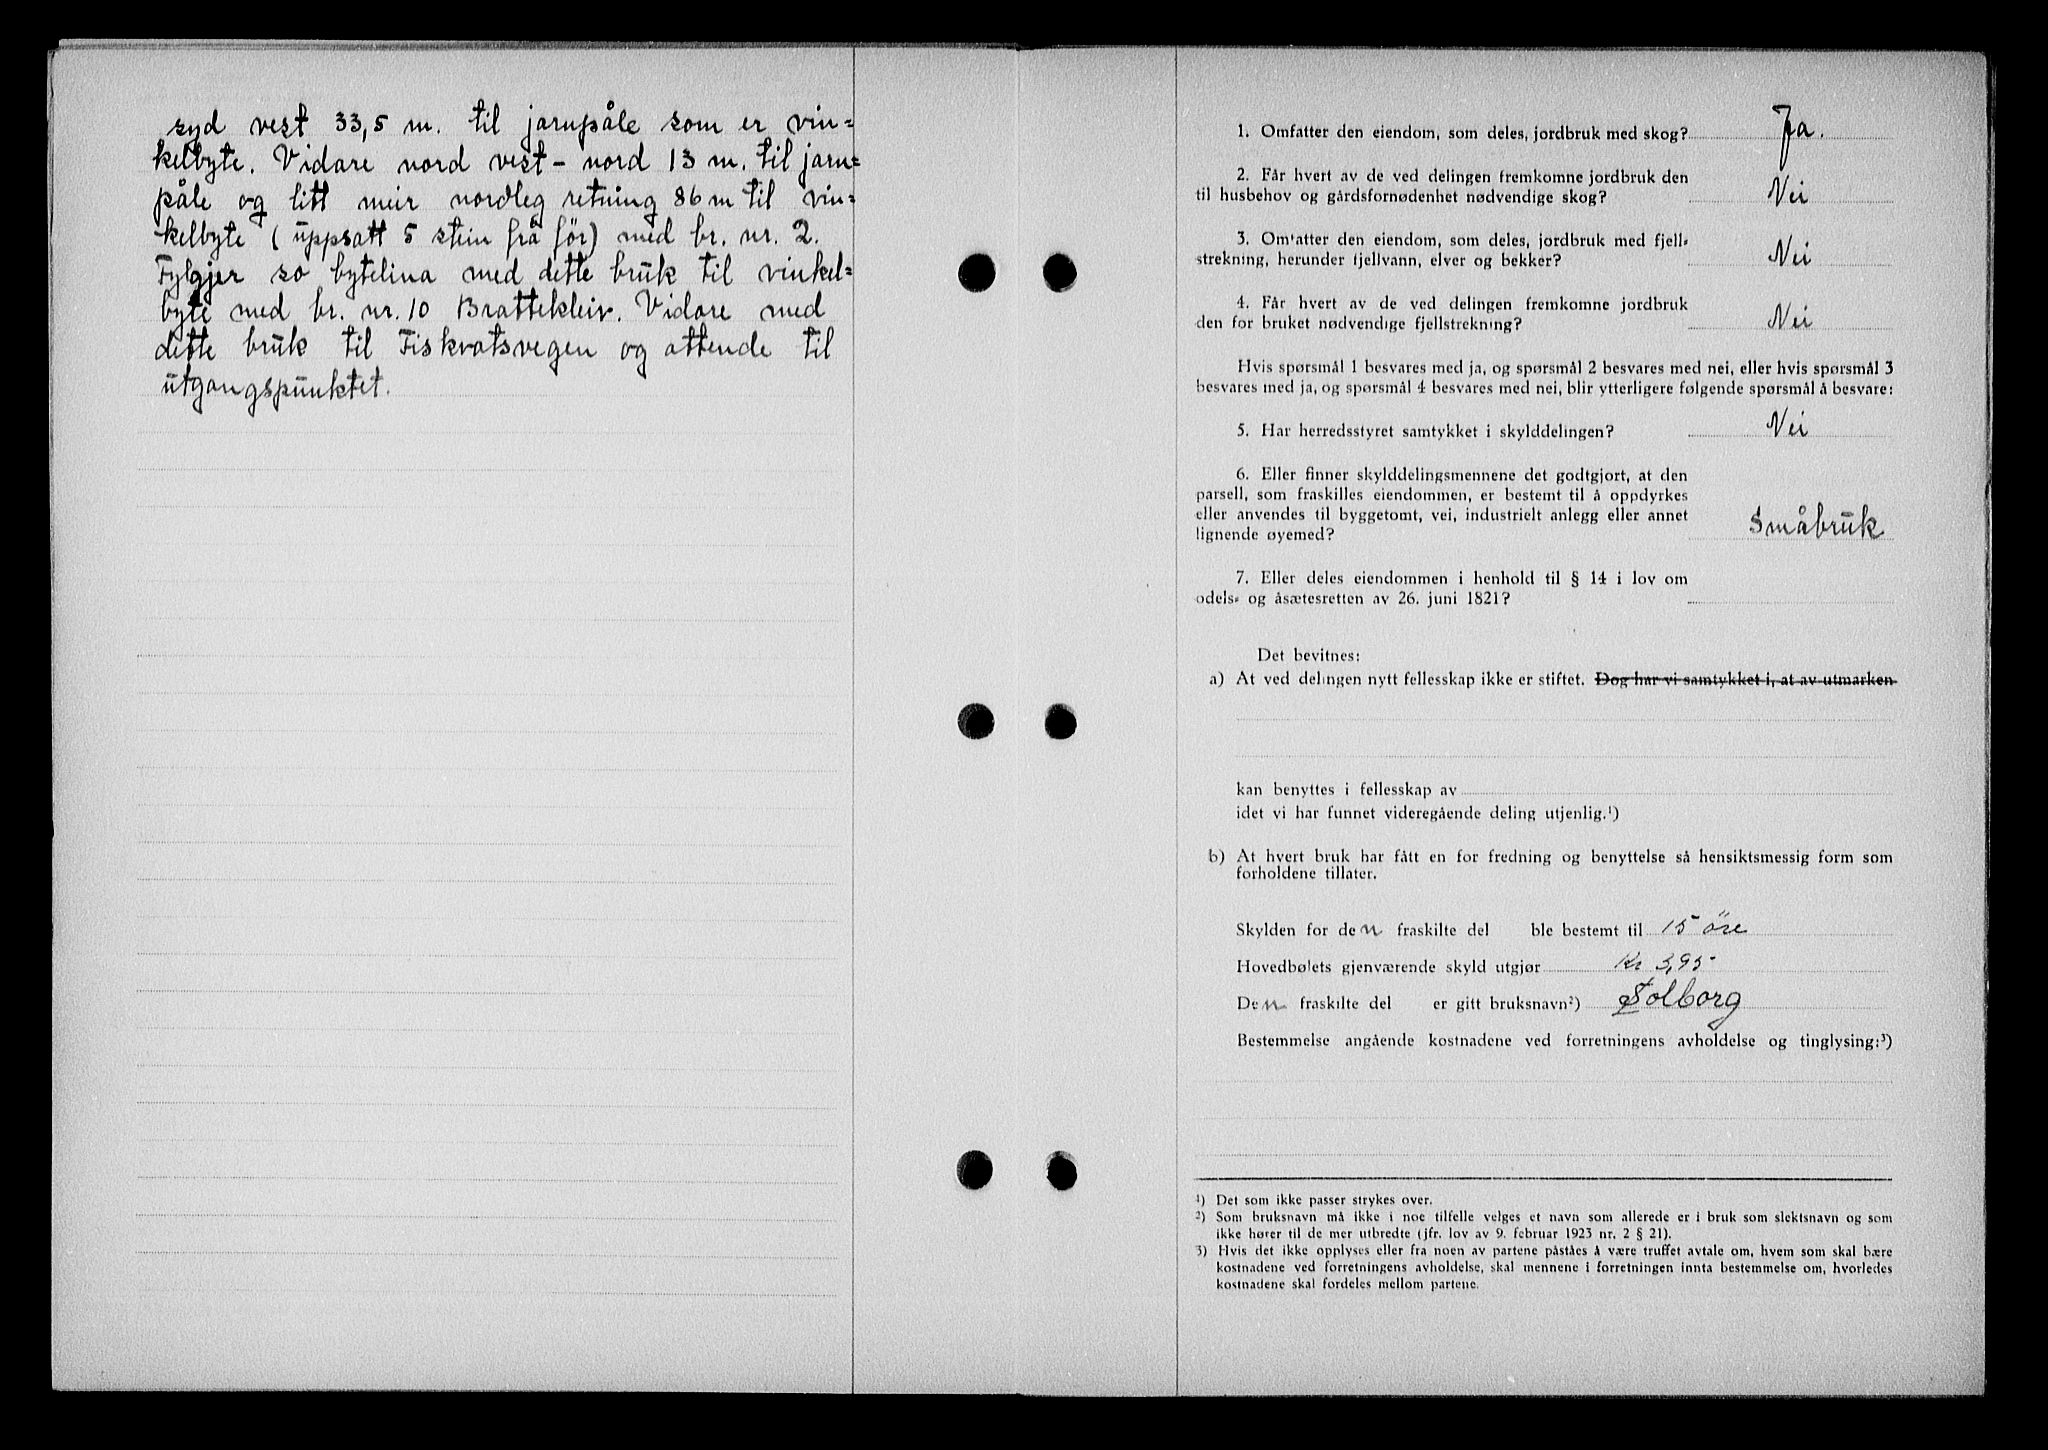 syd vest 33,5 m. til jarnpåle som er vin=
kelbyte. Vidare nord vest - nord 13 m. til jarn=
påle og litt meir nordleg retning 86 m til vin=
kelbyte (uppsatt 5 stein frå før) med br. nr. 2.
Fylgjer so bytelina med dette bruk til vinkel=
byte med br. nr. 10 Brattekleiv. Vidare med
dette bruk til Fiskvatsvegen og attende til
utgangspunktet.
1. Omfatter den eiendom, som deles, jordbruk med skog? Ja.
2. Får hvert av de ved delingen fremkomne jordbruk den
til husbehov og gårdsfornødenhet nødvendige skog? Nei
3. Omfatter den eiendom, som deles, jordbruk med fjell-
strekning, herunder fjellvann, elver og bekker? Nei
4. Får hvert av de ved delingen fremkomne jordbruk
den for bruket nødvendige fjellstrekning? Nei
Hvis spørsmål 1 besvares med ja, og spørsmål 2 besvares med nei, eller hvis spørsmål 3
besvares med ja, og spørsmål 4 besvares med nei, blir ytterligere følgende spørsmål å besvare:
5. Har herredsstyret samtykket i skylddelingen? Nei
6. Eller finner skylddelingsmennene det godtgjort, at den
parsell, som fraskilles eiendommen, er bestemt til å oppdyrkes
eller anvendes til byggetomt, vei, industrielt anlegg eller annet
lignende øyemed? Småbruk
7. Eller deles eiendommen i henhold til § 14 i lov om
odels- og åsætesretten av 26. juni 1821?
Det bevitnes:
a) At ved delingen nytt fellesskap ikke er stiftet. Dog har vi samtykket i, at av utmarken
kan benyttes i fellesskap av
idet vi har funnet videregående deling utjenlig.¹)
b) At hvert bruk har fått en for fredning og benyttelse så hensiktsmessig form som
forholdene tillater.
Skylden for den fraskilte del ble bestemt til 15 öre
Hovedbølets gjenværende skyld utgjør Kr 3,95
Den fraskilte del er gitt bruksnavn²) Solborg
Bestemmelse angående kostnadene ved forretningens avholdelse og tinglysing:³)
¹) Det som ikke passer strykes over.
²) Som bruksnavn må ikke i noe tilfelle velges et navn som allerede er i bruk som slektsnavn og som
ikke hører til de mer utbredte (jfr. lov av 9. februar 1923 nr. 2 § 21).
3) Hvis det ikke opplyses eller fra noen av partene påståes å være truffet avtale om, hvem som skal bære
kostnadene ved forretningens avholdelse, skal mennene i forretningen innta bestemmelse om, hvorledes
kostnadene skal fordeles mellom partene.